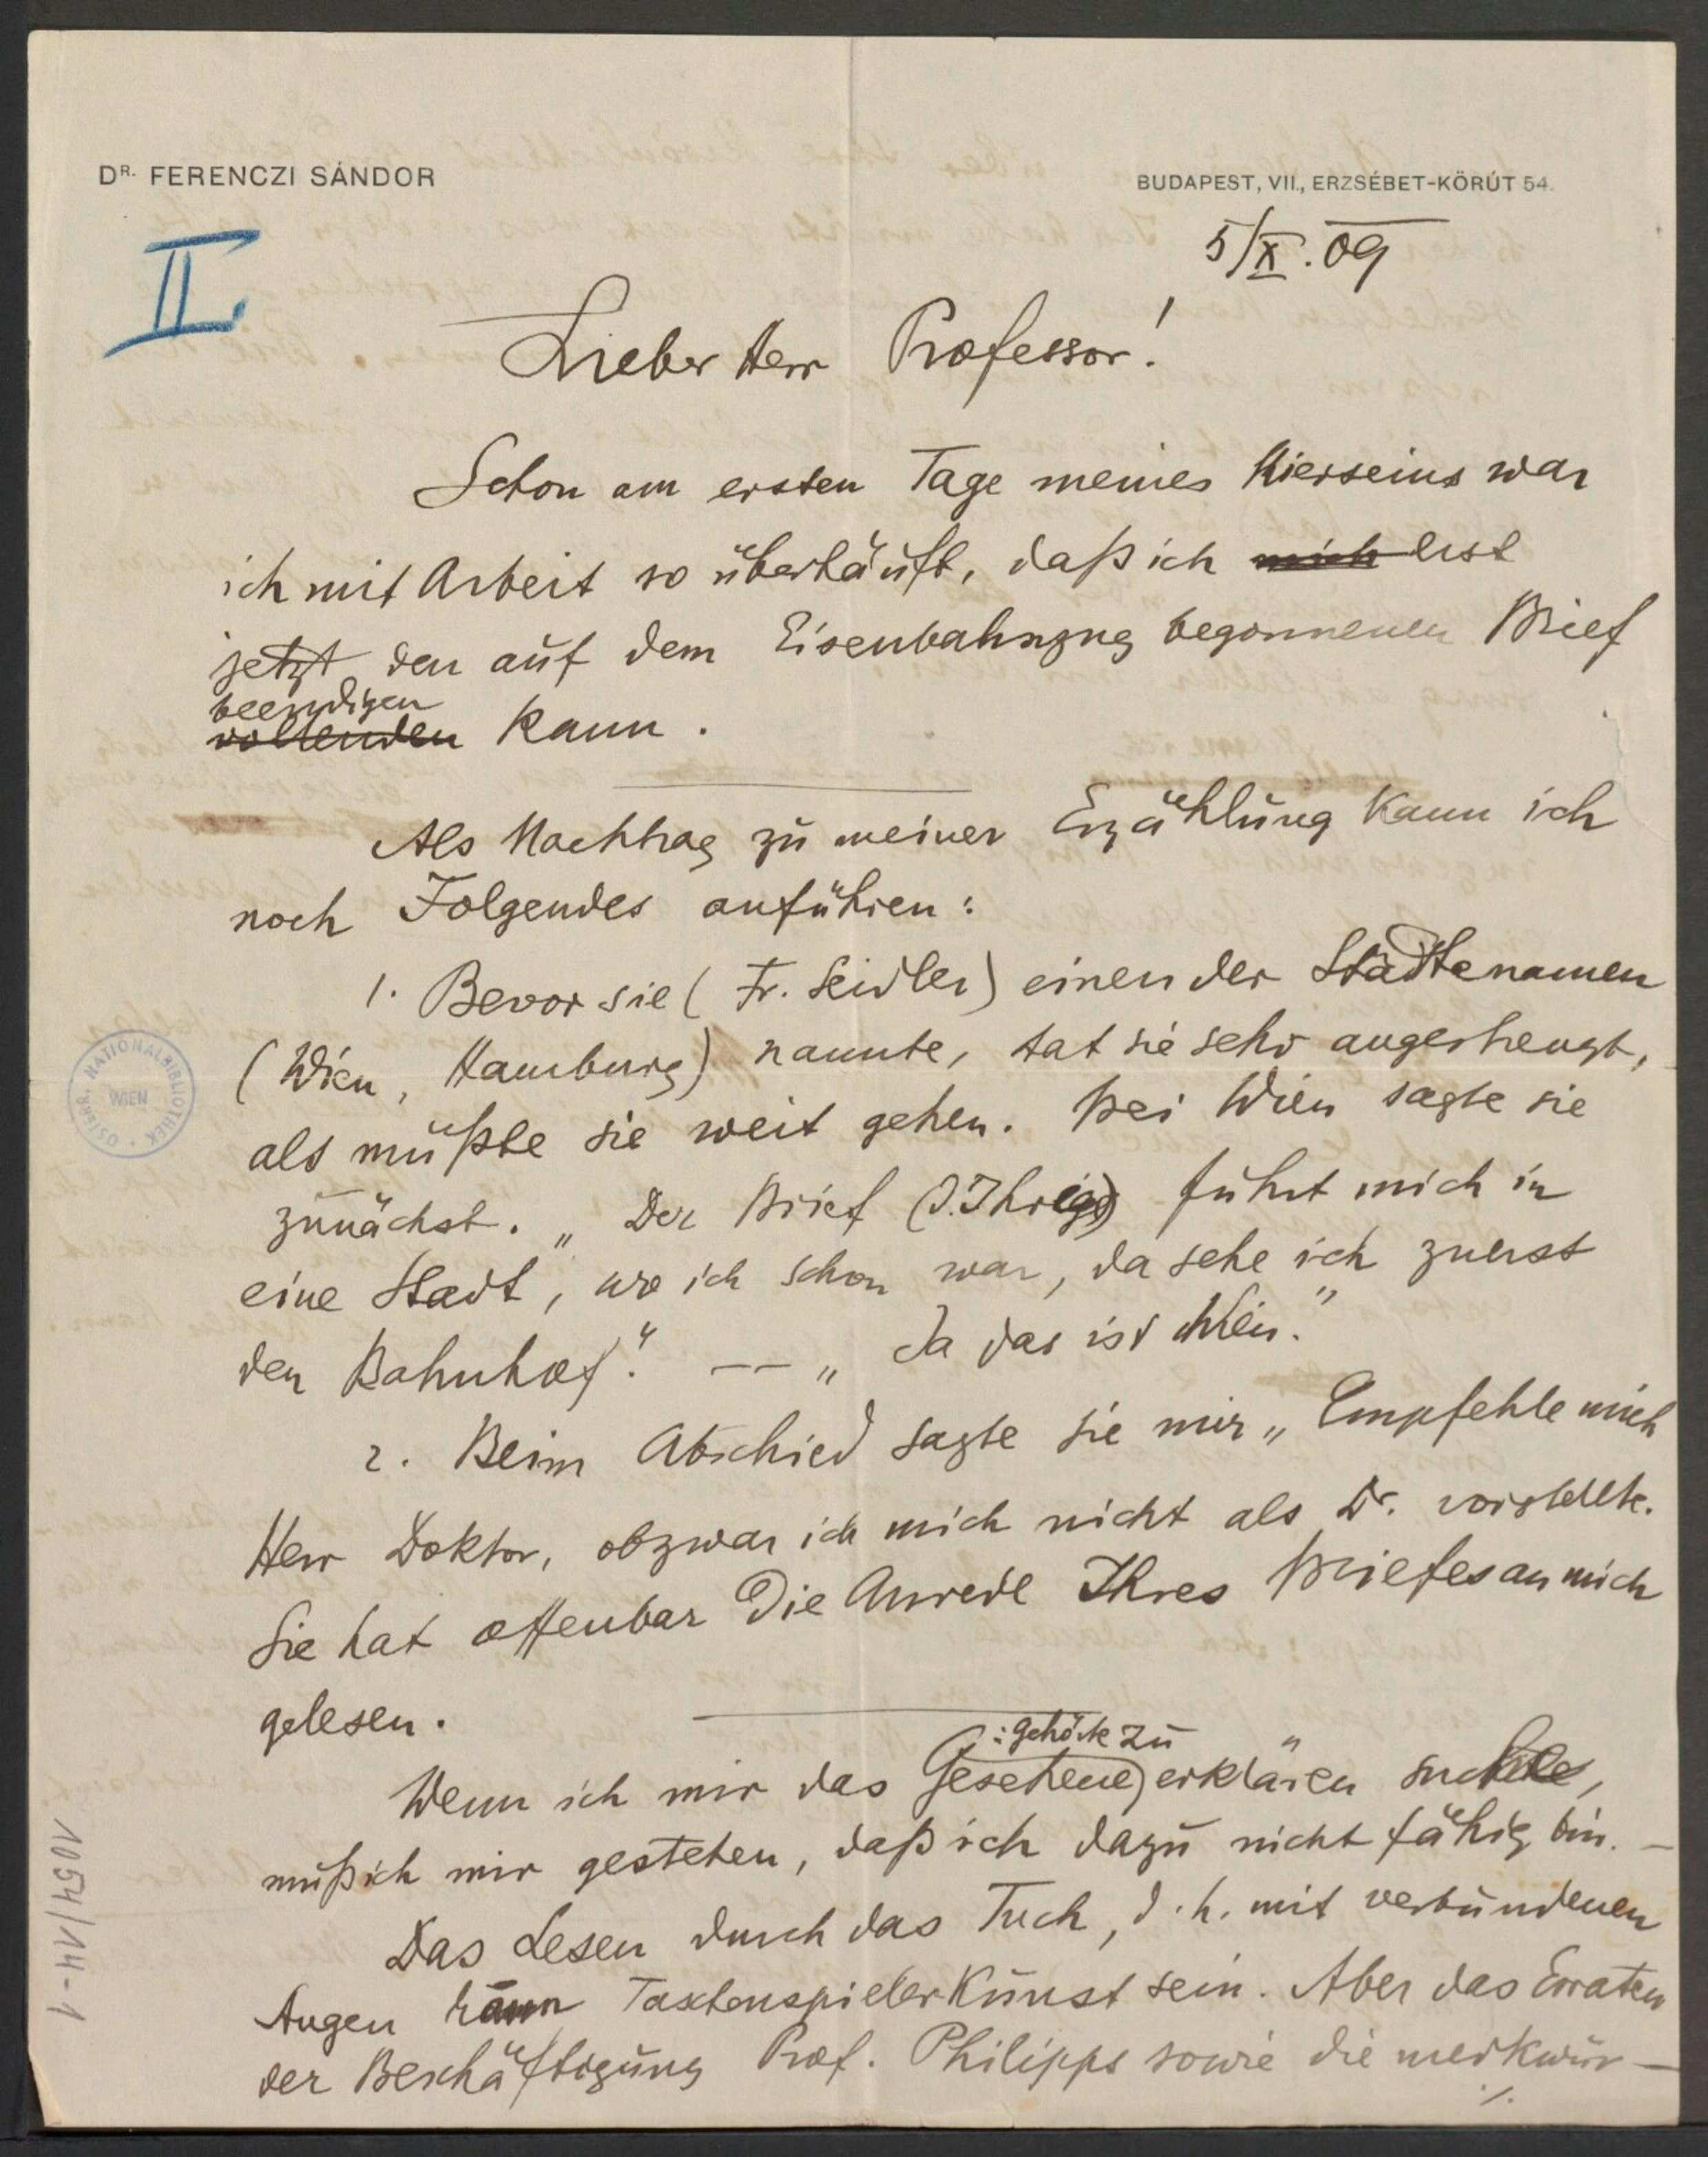 DR. FERENCZI SÁNDOR
BUDAPEST, VII., ERZSÉBET-KÖRÚT 54.
II.
5/X. 09
Lieber Herr Professor!
Schon am ersten Tage meines Hierseins war
ich mit Arbeit so überhäuft, daß ich mich erst
jetzt den auf dem Eisenbahnzug begonnenen Brief
beendigen
vollenden kann.
Als Nachtrag zu meiner Erzählung kann ich
noch Folgendes anführen:
1. Bevor sie (Fr. Seidler) einen der Städtenamen
(Wien, Hamburg) nannte, tat sie sehr angestrengt,
als müßte sie weit gehen. Bei Wien sagte sie
zunächst. „Der Brief (d. Ihrige) führt mich in
eine Stadt, wo ich schon war, da sehe ich zuerst
den Bahnhof." -- „Ja das ist Wien."
2. Beim Abschied sagte sie mir „Empfehle mich
Herr Doktor, obzwar ich mich nicht als Dr. vorstellte.
Sie hat offenbar die Anrede Ihres Briefes an mich
gelesen.
: gehörte zu
Wenn ich mir das Gesehene) erklären suchte,
muß ich mir gestehen, daß ich dazu nicht fähig bin. –
Das Lesen durch das Tuch, d. h. mit verbundenen
Augen kann Taschenspielerkunst sein. Aber das Erraten
der Beschäftigung Prof. Philipps sowie die merkwür-
./.
ÖSTERR. NATIONALBIBLIOTHEK WIEN
1054/14-1